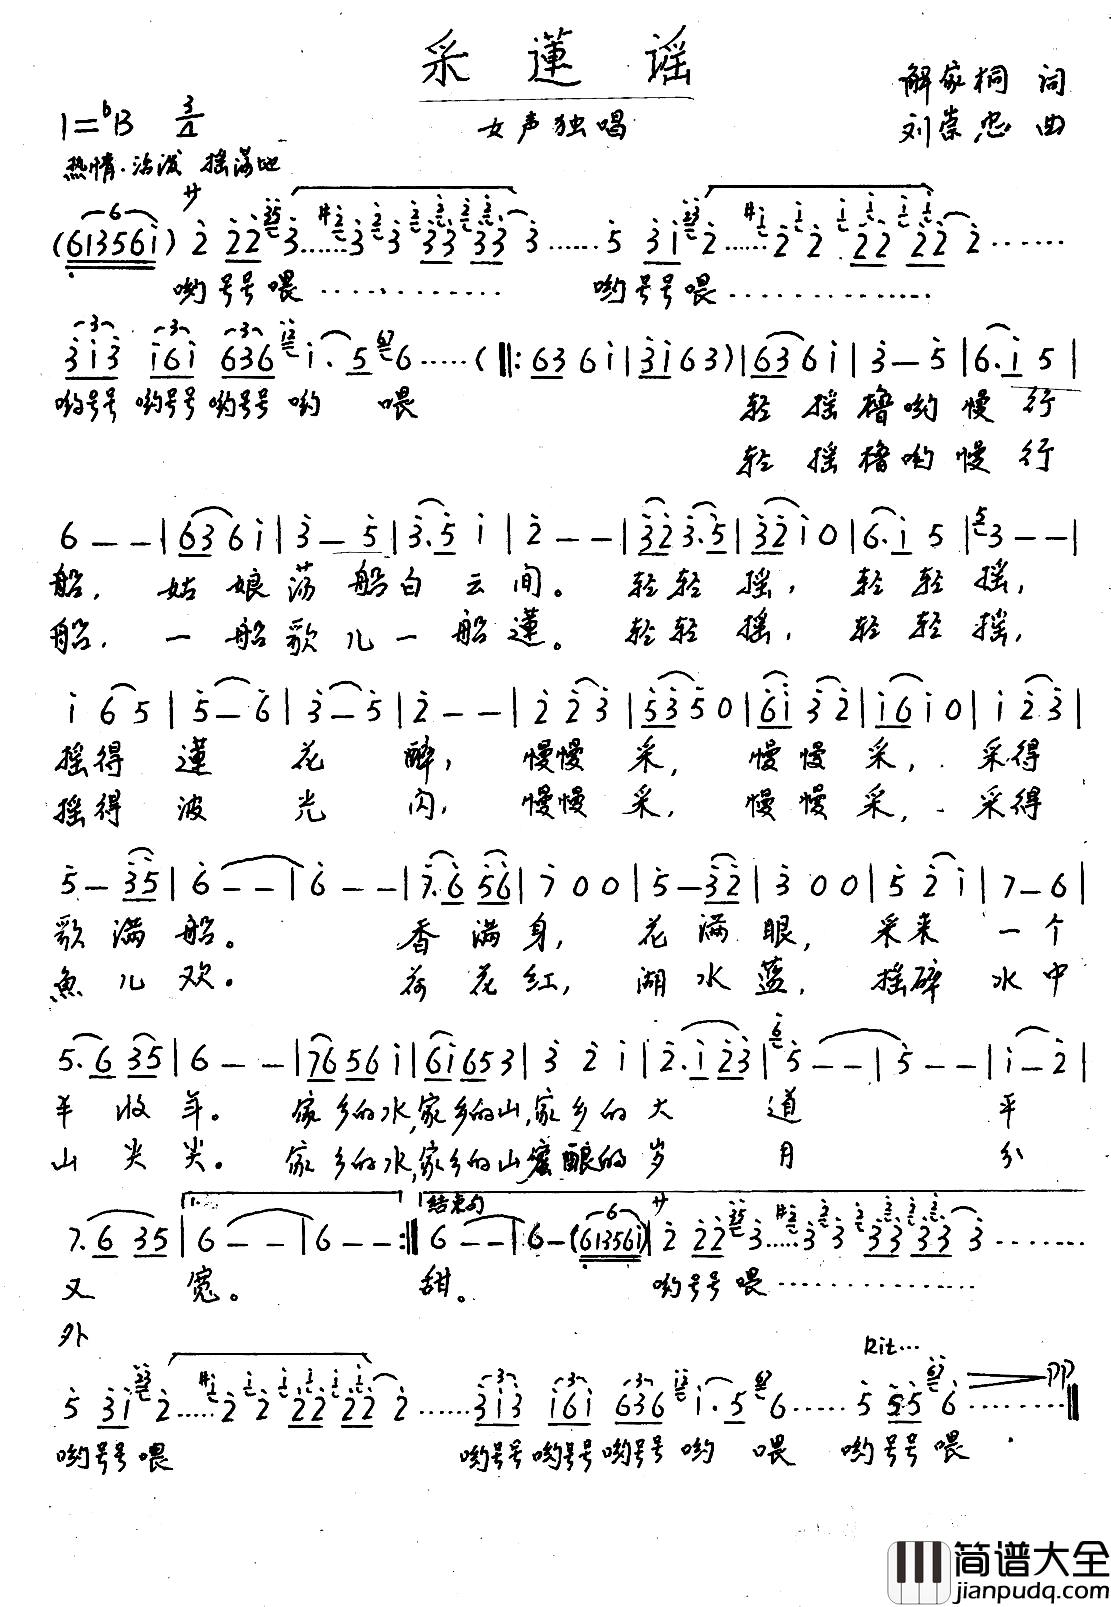 采蓮谣
解家桐 词
1=♭B 3/4 女声独唱 刘崇忠 曲
热情·活泼 摇荡地
(613561) 2 22 3……3 3 33 33 3…… 5 31 2……2 2 22 22 2……
哟号号喂………… 哟号号喂…………
313 161 636 1. 5 6……(‖: 63 6 1 | 31 6 3) | 63 6 1 | 3 — 5 | 6. 1 5 |
哟号号 哟号号 哟号号 哟 喂 轻 摇 橹哟 慢 行
轻 摇 橹哟 慢 行
6 — — | 63 6 1 | 3 — 5 | 3. 5 1 | 2 — — | 32 3.5 | 32 1 0 | 6. 1 5 | 3 — — |
船, 姑 娘 荡 船 白 云 间。 轻轻摇, 轻轻摇,
船, 一 船 歌 儿 一 船 蓮。 轻轻摇, 轻轻摇,
1 6 5 | 5 — 6 | 3 — 5 | 2 — — | 2 2 3 | 53 5 0 | 61 3 2 | 16 1 0 | 1 2 3 |
摇得 蓮 花 醉, 慢慢 采, 慢慢 采, 采得
摇得 波 光 闪, 慢慢 采, 慢慢 采, 采得
5 — 35 | 6 — — | 6 — — | 7. 6 56 | 7 0 0 | 5 — 32 | 3 0 0 | 5 2 1 | 7 — 6 |
歌 满 船。 香 满 身, 花 满 眼, 采来 一 个
魚 儿 欢。 荷 花 红, 湖 水 蓝, 摇碎 水 中
5. 6 35 | 6 — — | 76 5 6 1 | 61 65 3 | 3 2 1 | 2. 1 23 | 5 — — | 5 — — | 1 — 2 |
丰 收 年。 家乡的水,家乡的山,家乡的大 道 平
山 尖 尖。 家乡的水,家乡的山,蜜酿的岁 月 分
1. 结束句
7. 6 35 | 6 — — | 6 — — :‖ 6 — — | 6 — (613561) | 2 22 3……3 3 33 33 3……
又 宽。 甜。 哟号号喂…………
外
Rit…
5 31 2……2 2 22 22 2……313 161 636 1. 5 6…… 5 55 6…… pp ‖
哟号号喂 哟号号哟号号哟号号 哟 喂 哟号号喂
简谱大全
jianpudq.com